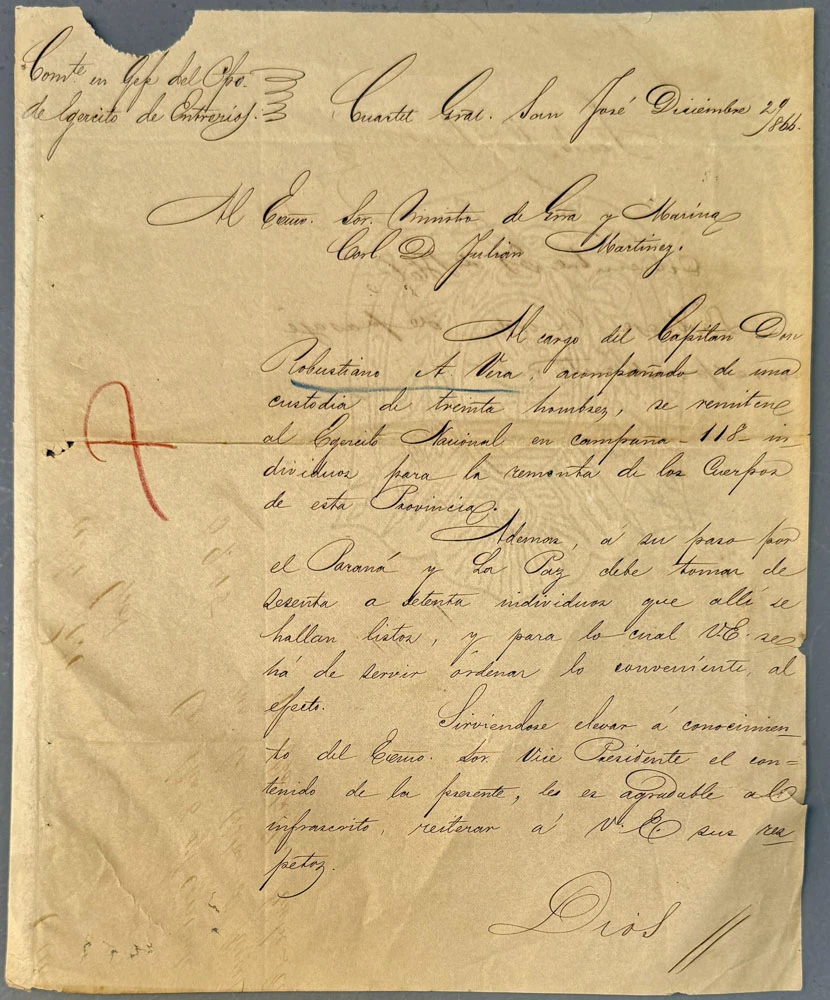 Comte en Gefe del Cpo.
de Egercito de Entrerios.
Cuartel Gral. San José Diciembre 29/866.
Al Exmo. Sor. Ministro de Grra y Marina
Corl D Julian Martinez.
Al cargo del Capitan Don
Robustiano A Vera, acompañado de una
custodia de treinta hombres, se remiten
al Egercito Nacional en campaña - 118 - in-
dividuos para la remonta de los Cuerpos
de esta Provincia.
Ademas, á su paso por
el Paraná y La Paz debe tomar de
sesenta a setenta individuos que allí se
hallan listos, y para lo cual V.E. se
há de servir ordenar lo conveniente, al
efecto.
Sirviendose elevar á conocimien-
to del Exmo. Sor. Vice Presidente el con=
tenido de la presente, les es agradable al
infrascrito, reiterar á V.E. sus res-
petos.
Dios //